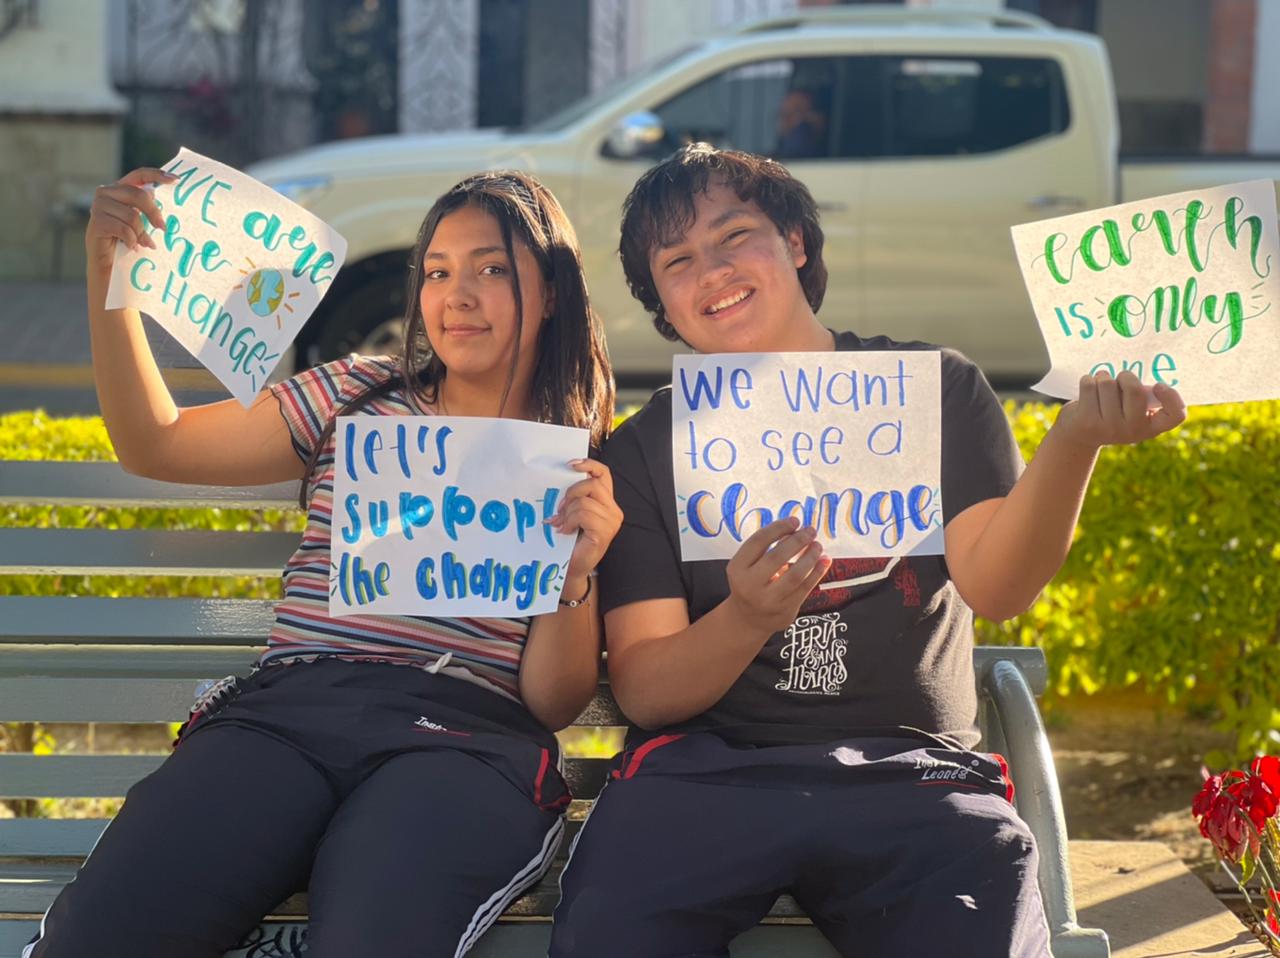 WE are
the
CHANGE
let's
support
the change
We want
to see a
change
earth
is only
one
FERIA
SAN
MARCOS
Leones